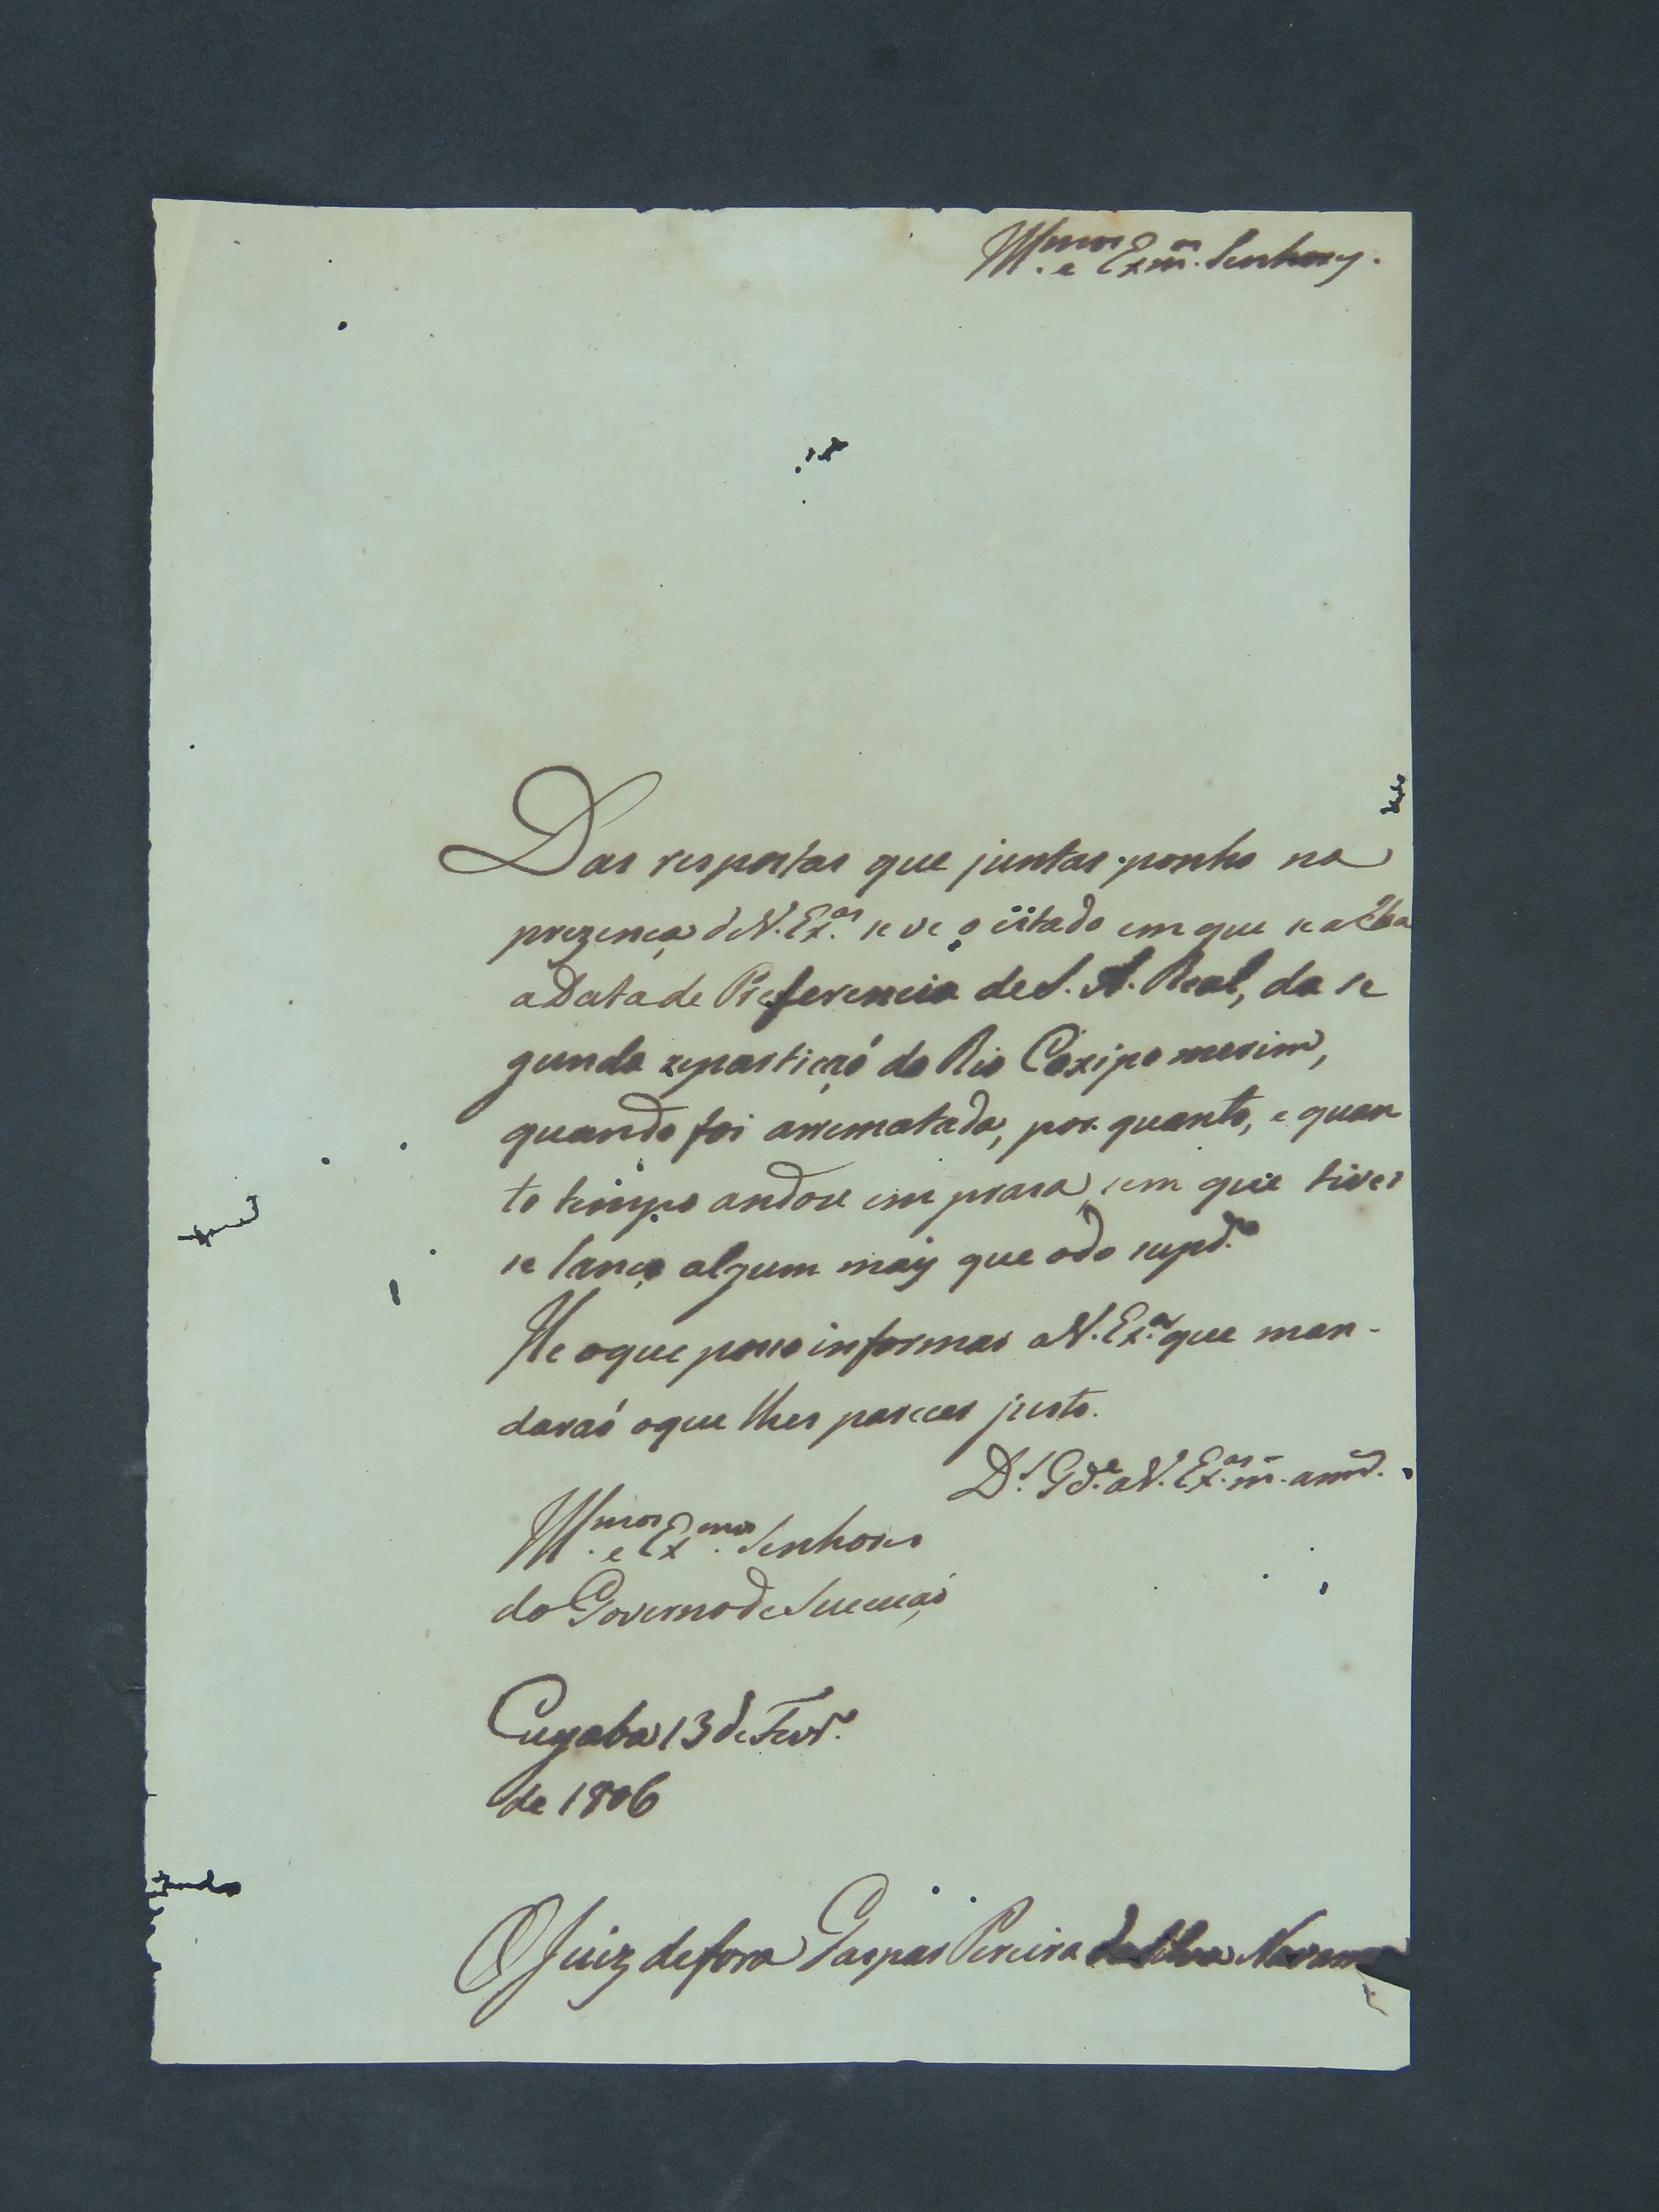 Ill.mos e Exm.os Senhores.
Das respostas que juntas ponho na
prezença de V. Ex.as se ve o estado em que se acha
a Data de Preferencia de S. A. Real, da se
gunda repartiçaó do Rio Coxipo merim,
quando foi arrematada, por quanto, e quan
to tempo andou em prasa, sem que tives
se lanço algum mais que o do supd.o
He o que posso informar a V. Ex.as que man-
daraó o que lhes parecer justo.
D.s G.de a V. Ex.as m.s ann.s
Ill.mos e Ex.mos Senhores
do Governo de Sucessaó
Cuyaba 13 de Fevr.o
de 1806
O Juiz de fora Gaspar Pereira da Silva Navarro